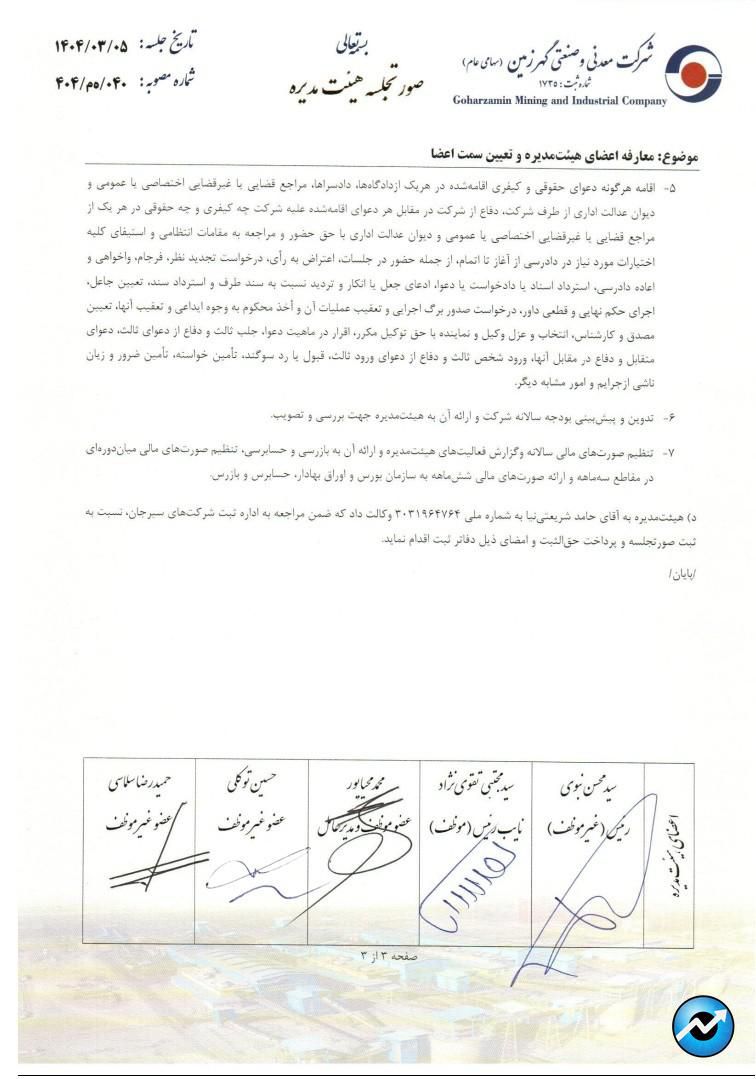 بسمه‌تعالی
صورتجلسه هیئت مدیره
شرکت معدنی و صنعتی گهرزمین (سهامی عام)
شماره ثبت: ۱۷۳۵
Goharzamin Mining and Industrial Company
تاریخ جلسه: ۱۴۰۴/۰۳/۰۵
شماره مصوبه: ۴۰۴/ه‍م/۰۴۰
موضوع: معارفه اعضای هیئت‌مدیره و تعیین سمت اعضا
۵- اقامه هرگونه دعوای حقوقی و کیفری اقامه‌شده در هریک ازدادگاه‌ها، دادسراها، مراجع قضایی یا غیرقضایی اختصاصی یا عمومی و
دیوان عدالت اداری از طرف شرکت، دفاع از شرکت در مقابل هر دعوای اقامه‌شده علیه شرکت چه کیفری و چه حقوقی در هر یک از
مراجع قضایی یا غیرقضایی اختصاصی یا عمومی و دیوان عدالت اداری با حق حضور و مراجعه به مقامات انتظامی و استیفای کلیه
اختیارات مورد نیاز در دادرسی از آغاز تا اتمام، از جمله حضور در جلسات، اعتراض به رأی، درخواست تجدید نظر، فرجام، واخواهی و
اعاده دادرسی، استرداد اسناد یا دادخواست یا دعوا، ادعای جعل یا انکار و تردید نسبت به سند طرف و استرداد سند، تعیین جاعل،
اجرای حکم نهایی و قطعی داور، درخواست صدور برگ اجرایی و تعقیب عملیات آن و أخذ محکوم به وجوه ایداعی و تعقیب آنها، تعیین
مصدق و کارشناس، انتخاب و عزل وکیل و نماینده با حق توکیل مکرر، اقرار در ماهیت دعوا، جلب ثالث و دفاع از دعوای ثالث، دعوای
متقابل و دفاع در مقابل آنها، ورود شخص ثالث و دفاع از دعوای ورود ثالث، قبول یا رد سوگند، تأمین خواسته، تأمین ضرور و زیان
ناشی ازجرایم و امور مشابه دیگر.
۶- تدوین و پیش‌بینی بودجه سالانه شرکت و ارائه آن به هیئت‌مدیره جهت بررسی و تصویب.
۷- تنظیم صورت‌های مالی سالانه وگزارش فعالیت‌های هیئت‌مدیره و ارائه آن به بازرسی و حسابرسی، تنظیم صورت‌های مالی میان‌دوره‌ای
در مقاطع سه‌ماهه و ارائه صورت‌های مالی شش‌ماهه به سازمان بورس و اوراق بهادار، حسابرس و بازرس.
د) هیئت‌مدیره به آقای حامد شریعتی‌نیا به شماره ملی ۳۰۳۱۹۶۴۷۶۴ وکالت داد که ضمن مراجعه به اداره ثبت شرکت‌های سیرجان، نسبت به
ثبت صورتجلسه و پرداخت حق‌الثبت و امضای ذیل دفاتر ثبت اقدام نماید.
/پایان/
اعضای هیئت مدیره
سید محسن نبوی
رئیس (غیرموظف)
سید مجتبی تقوی نژاد
نایب رئیس (موظف)
محمد محیاپور
عضو موظف و مدیرعامل
حسین توکلی
عضو غیرموظف
حمیدرضا سلاسی
عضو غیرموظف
صفحه ۳ از ۳